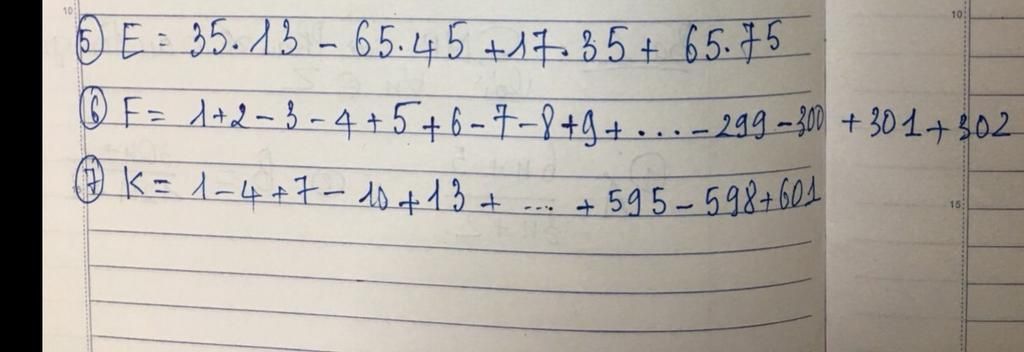 10
10
5) E = 35.13 - 65.45 + 17.35 + 65.75
6) F = 1+2-3-4+5+6-7-8+9+....-299-300 +301+302
7) K = 1-4+7-10+13+ ... + 595-598+601
15